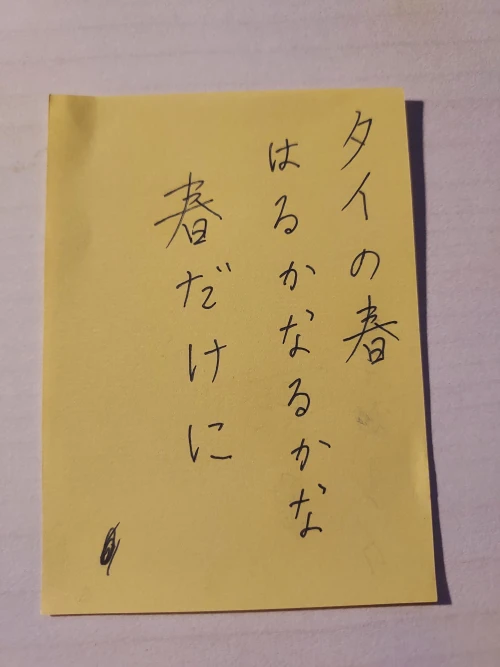 タイの春
はるかなるかな
春だけに